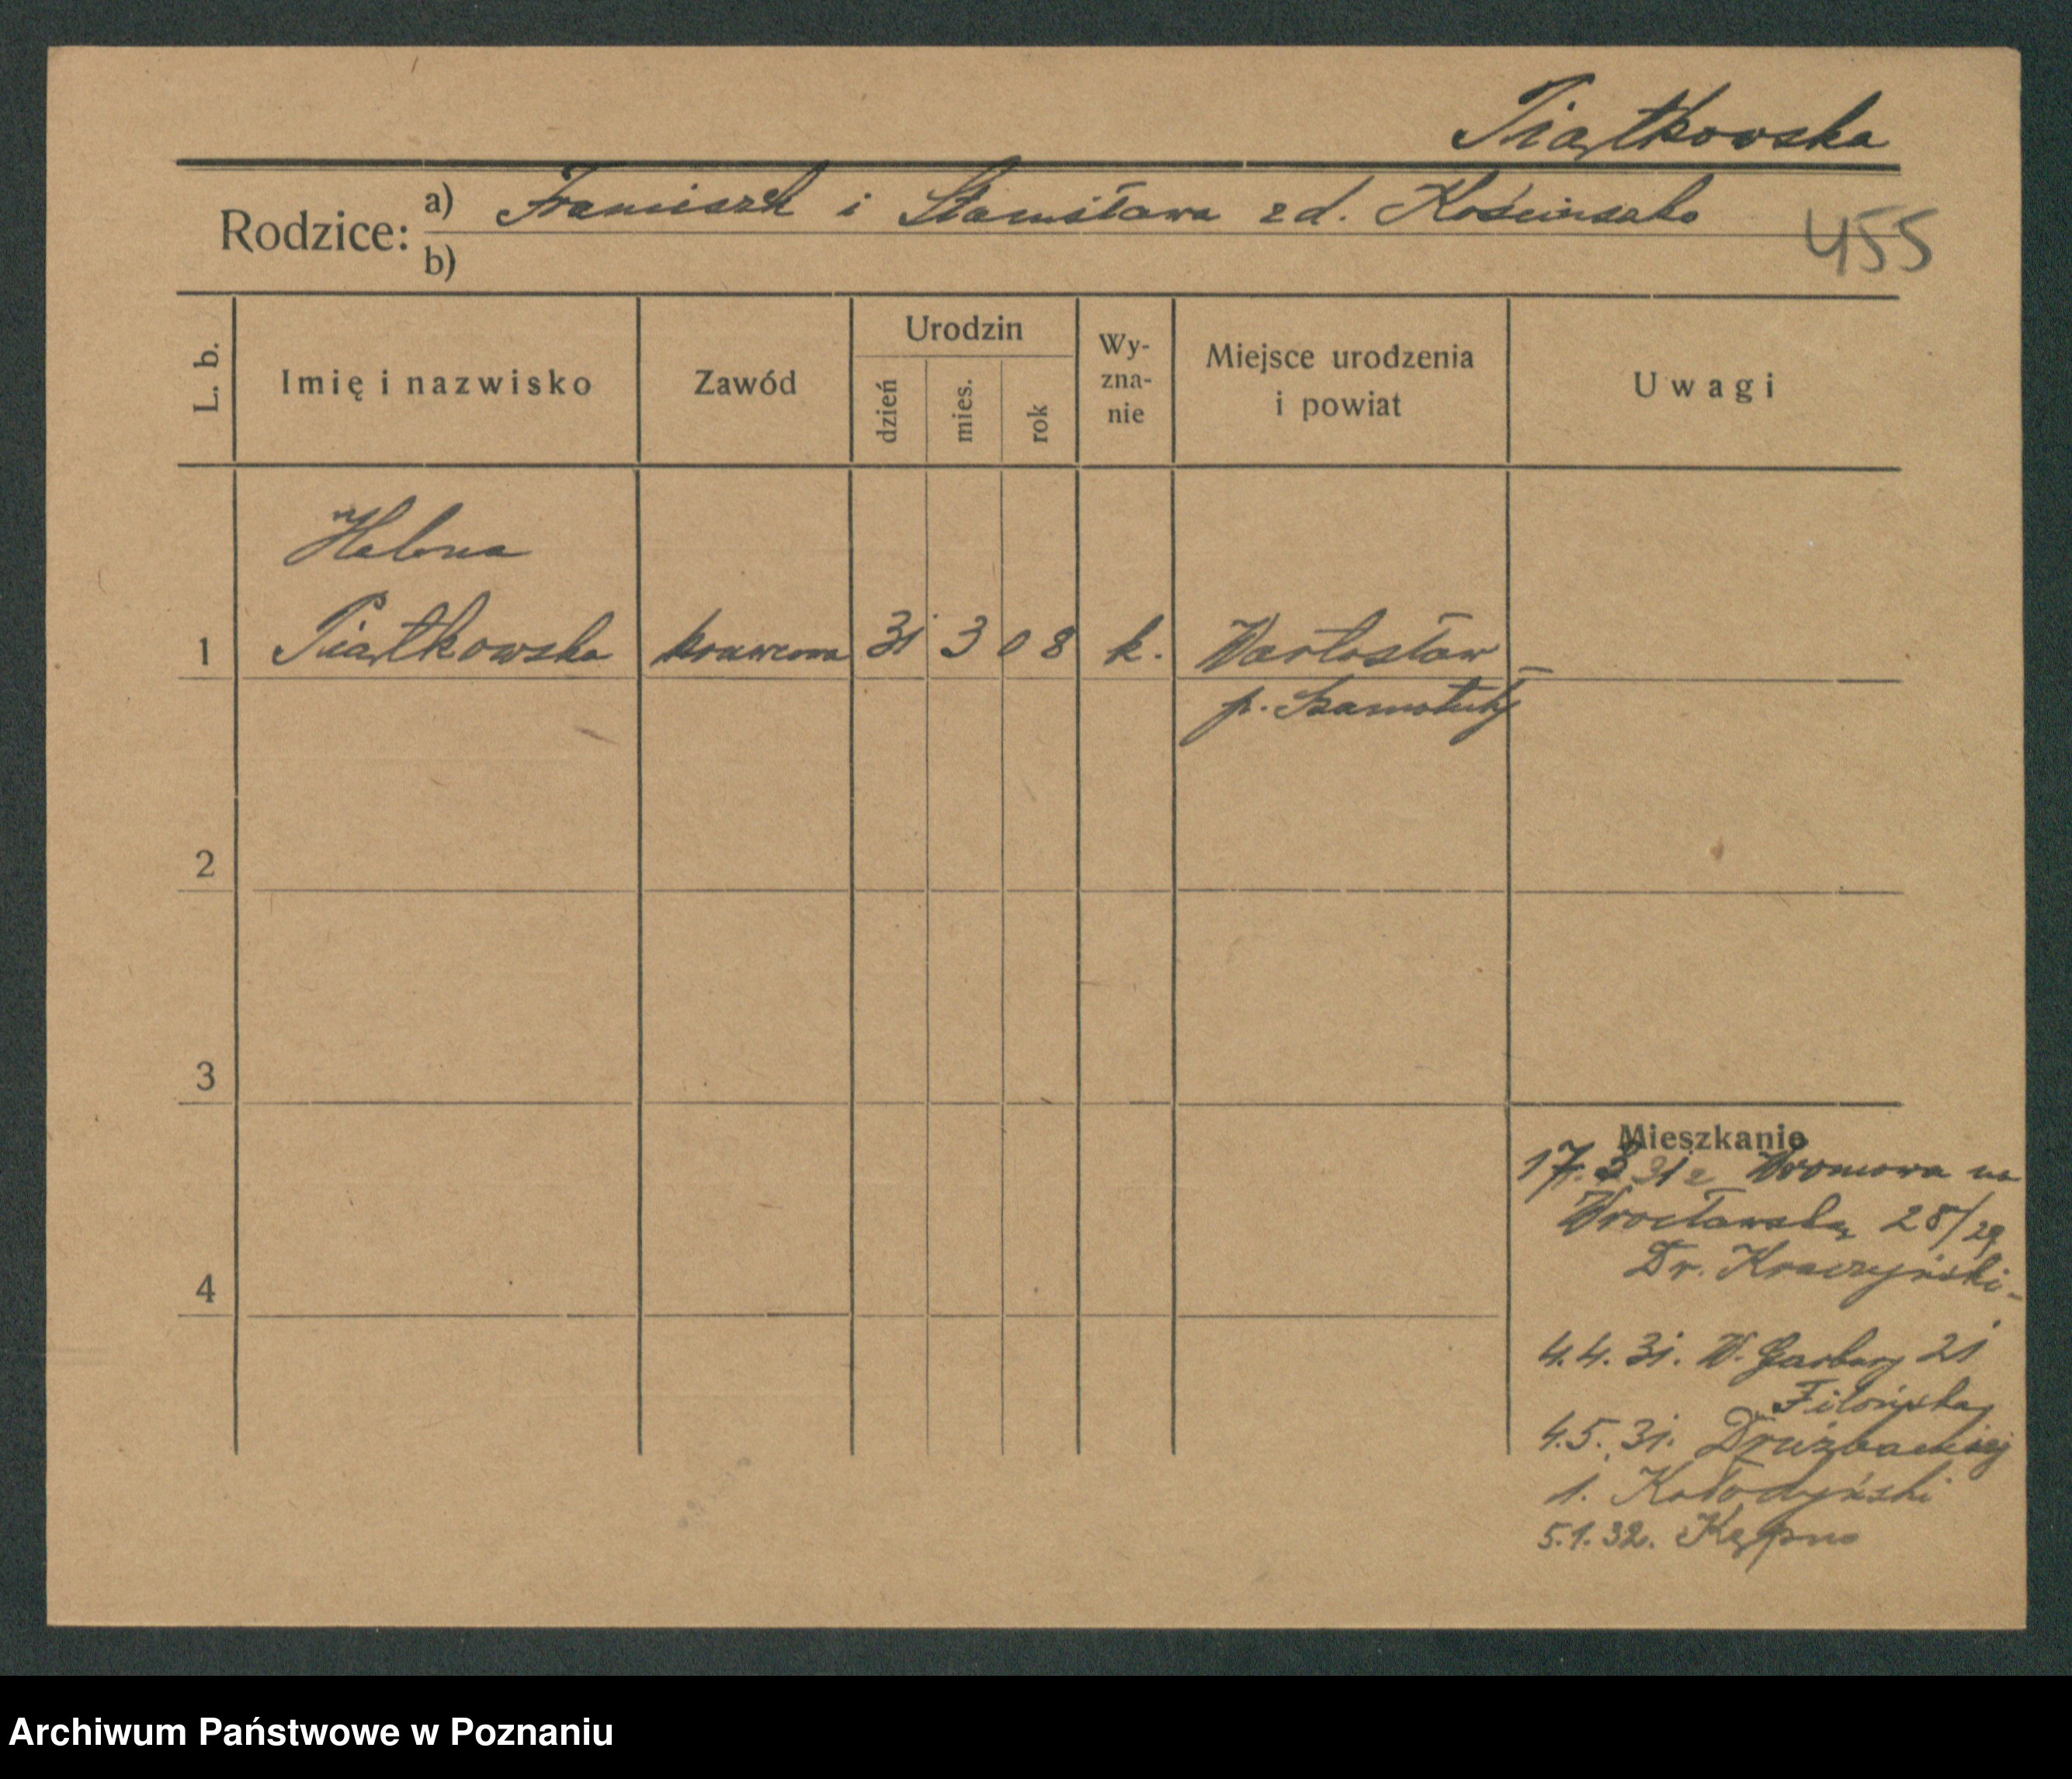 Piątkowska
Rodzice: a) Franciszek i Stanisława z d. Kościńska
b)
455
L. b.
Imię i nazwisko
Zawód
Urodzin
dzień
mies.
rok
Wy-
zna-
nie
Miejsce urodzenia
i powiat
Uwagi
Helena
1 Piątkowska krawcowa 31 3 08 k. Wartosław
p. Szamotuły
2
3
4
Mieszkanie
17. 3 31 z Wronowa na
Wrocławską 28/29
Dr. Kraczyński-
4.4. 31. W. Garbary 21
4.5. 31. Drużbackiej
1. Kołodyński
5.1.32. Kępno
Archiwum Państwowe w Poznaniu